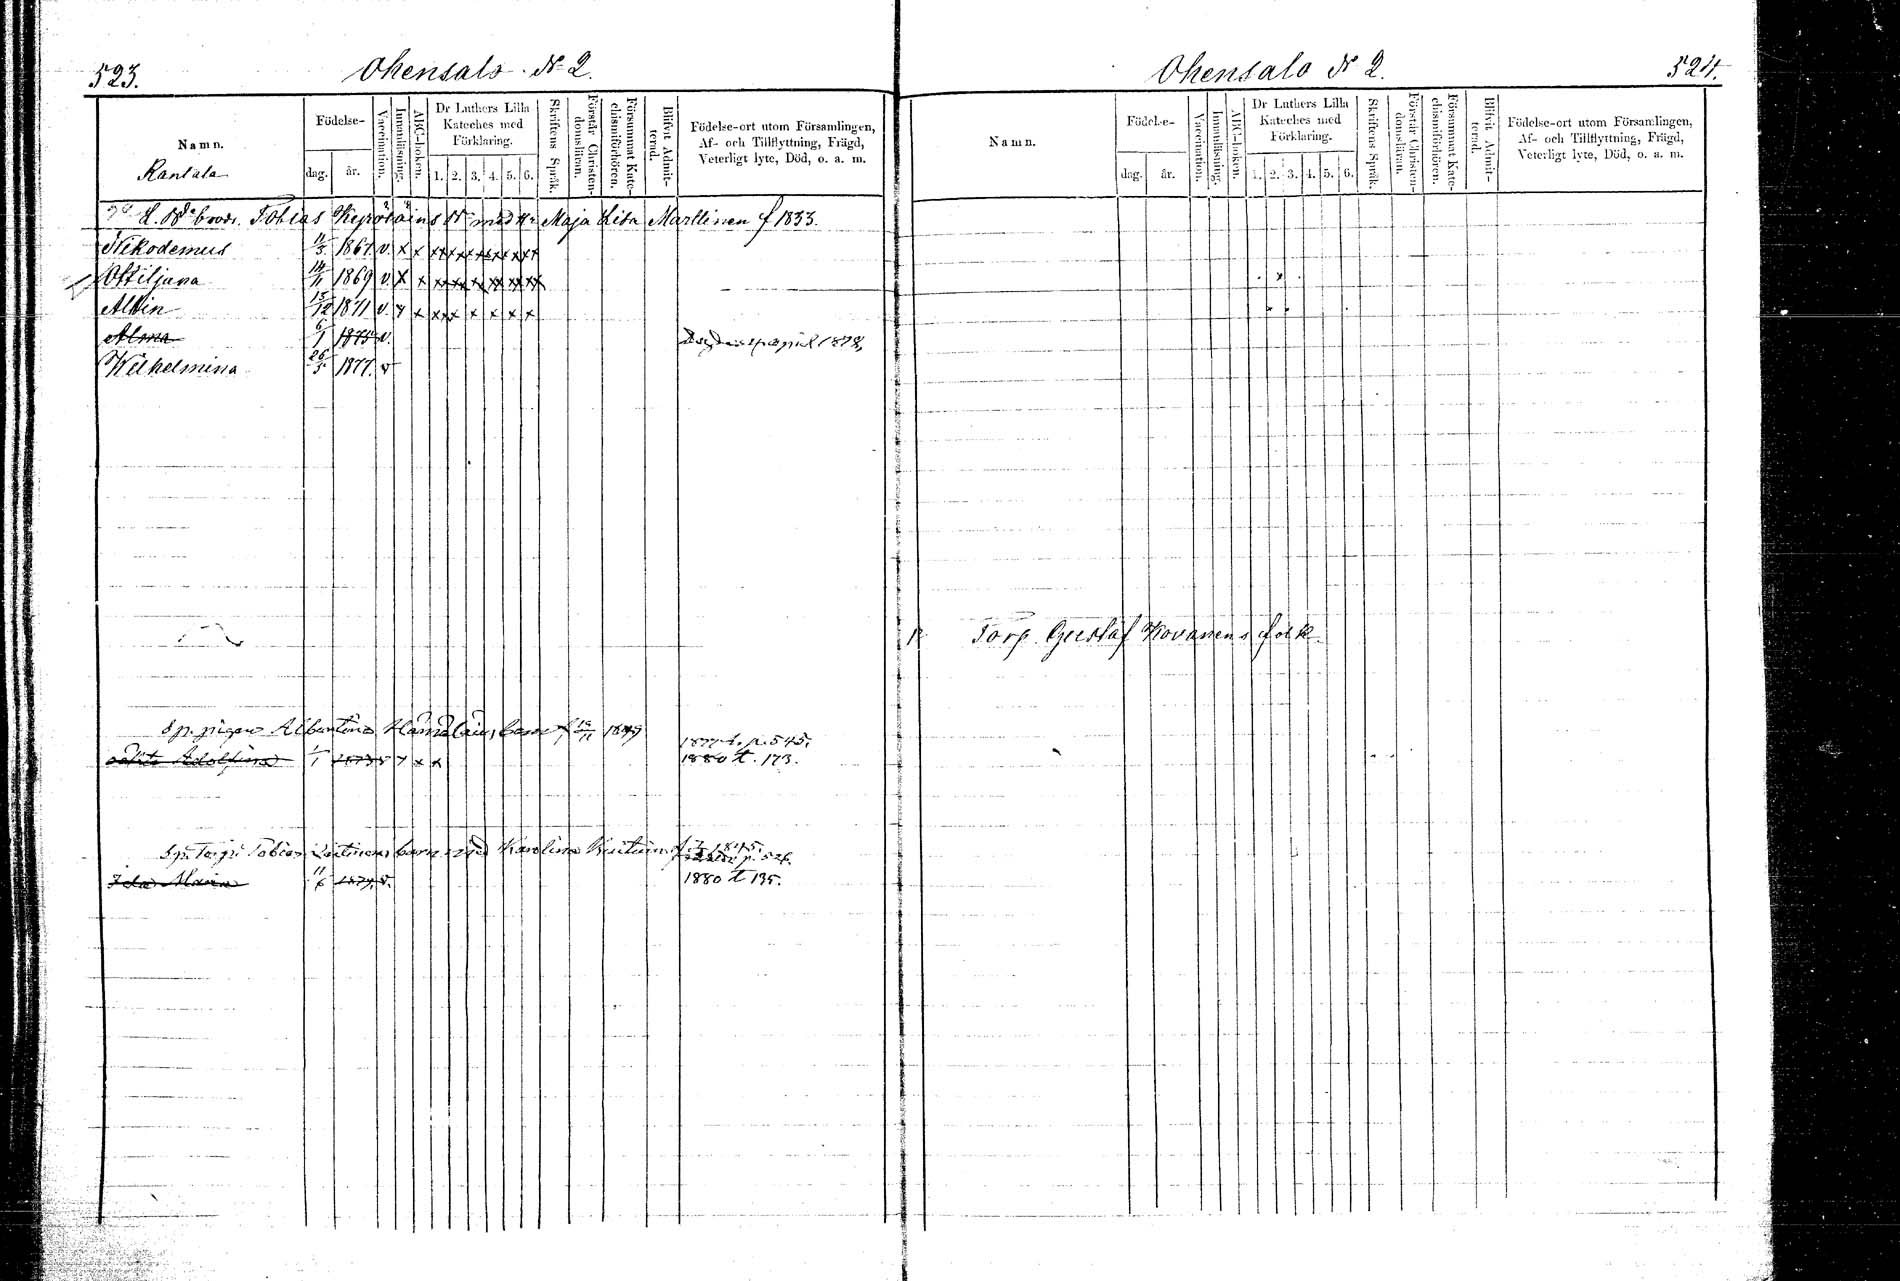 523.
Ohensalo № 2.
Namn.
Rantala
Födelse-
dag.
år.
Vaccination.
Innanläsning.
ABC-boken.
Dr Luthers Lilla
Kateches med
Förklaring.
1. 2. 3. 4. 5. 6.
Skriftens Språk.
Förstår Christen-
domsläran.
Försummat Kate-
chismiförhören.
Blifvit Admit-
terad.
Födelse-ort utom Församlingen,
Af- och Tillflyttning, Frägd,
Veterligt lyte, Död, o. a. m.
Tobias Kepoläins med Maja Lisa Marttinen f 1833.
Nikodemus 11/3 1867. v. x x xx x xx xx xx x xx
Ottiljana 14/11 1869 v. x x xx xx xx xx xx xx
Alvin 15/12 1871 v. x x xxx x x x x
Alma 6/1 1875 v.
Wilhelmina 26/3 1877. v
Sp. pigan Albertina barn 1849
1877 p. 545.
Adolfina 1/1 1873 v x x x 1880 t. 173.
Sp. Torp. Tobias barn med Karolina 1845.
p. 526.
Ida Maria 11/6 1879. v. 1880 t 195.
Ohensalo № 2.
524.
Namn.
Födelse-
dag.
år.
Vaccination.
Innanläsning.
ABC-boken.
Dr Luthers Lilla
Kateches med
Förklaring.
1. 2. 3. 4. 5. 6.
Skriftens Språk.
Förstår Christen-
domsläran.
Försummat Kate-
chismiförhören.
Blifvit Admit-
terad.
Födelse-ort utom Församlingen,
Af- och Tillflyttning, Frägd,
Veterligt lyte, Död, o. a. m.
Torp. Gustaf Kovanens folk